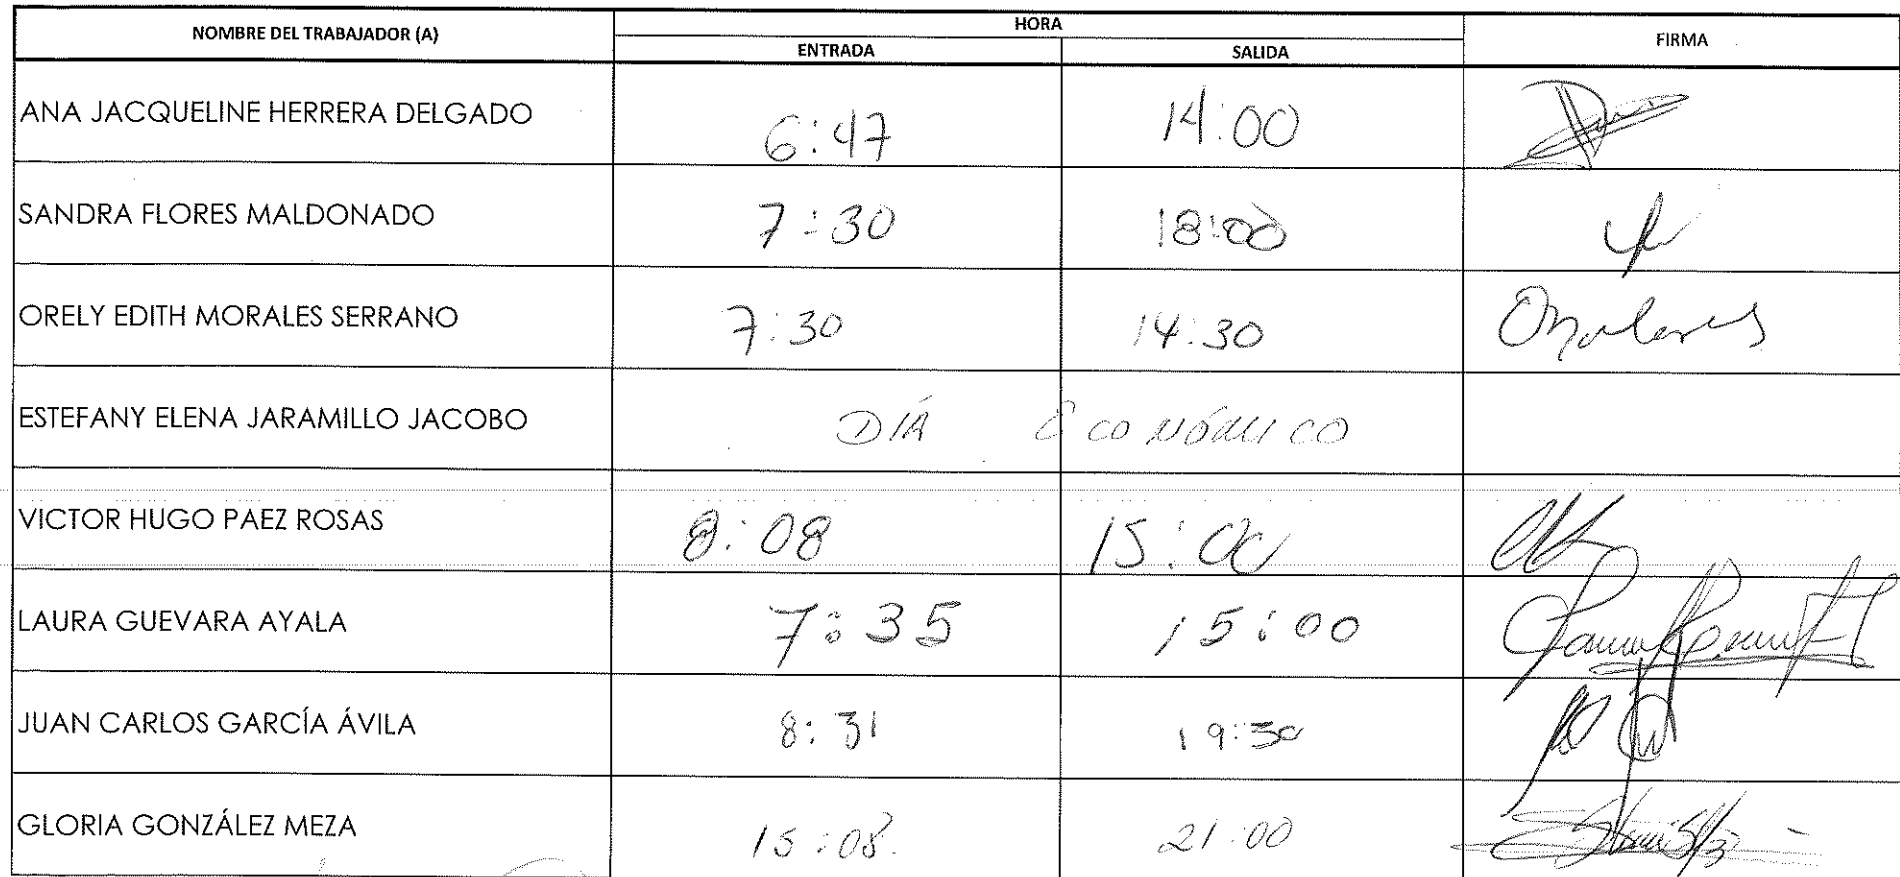 NOMBRE DEL TRABAJADOR (A) HORA FIRMA
ENTRADA SALIDA
ANA JACQUELINE HERRERA DELGADO 6:47 14:00
SANDRA FLORES MALDONADO 7:30 18:00
ORELY EDITH MORALES SERRANO 7:30 14:30 OMorales
ESTEFANY ELENA JARAMILLO JACOBO DÍA ECONÓMICO
VICTOR HUGO PAEZ ROSAS 8:08 15:00
LAURA GUEVARA AYALA 7:35 15:00
JUAN CARLOS GARCÍA ÁVILA 8:31 19:30
GLORIA GONZÁLEZ MEZA 15:08 21:00